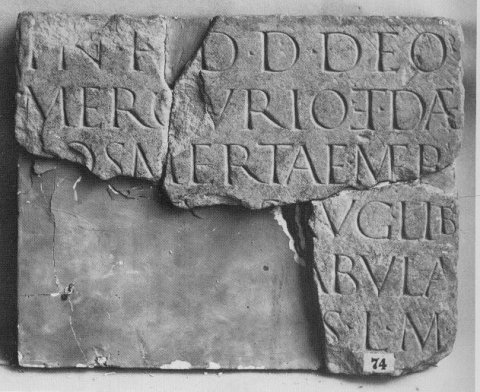 IN H D·D·DEO
MERCVRIO·ET·DAE
OSMERTAE
VG LIB
ABVLA
S·L·M
74